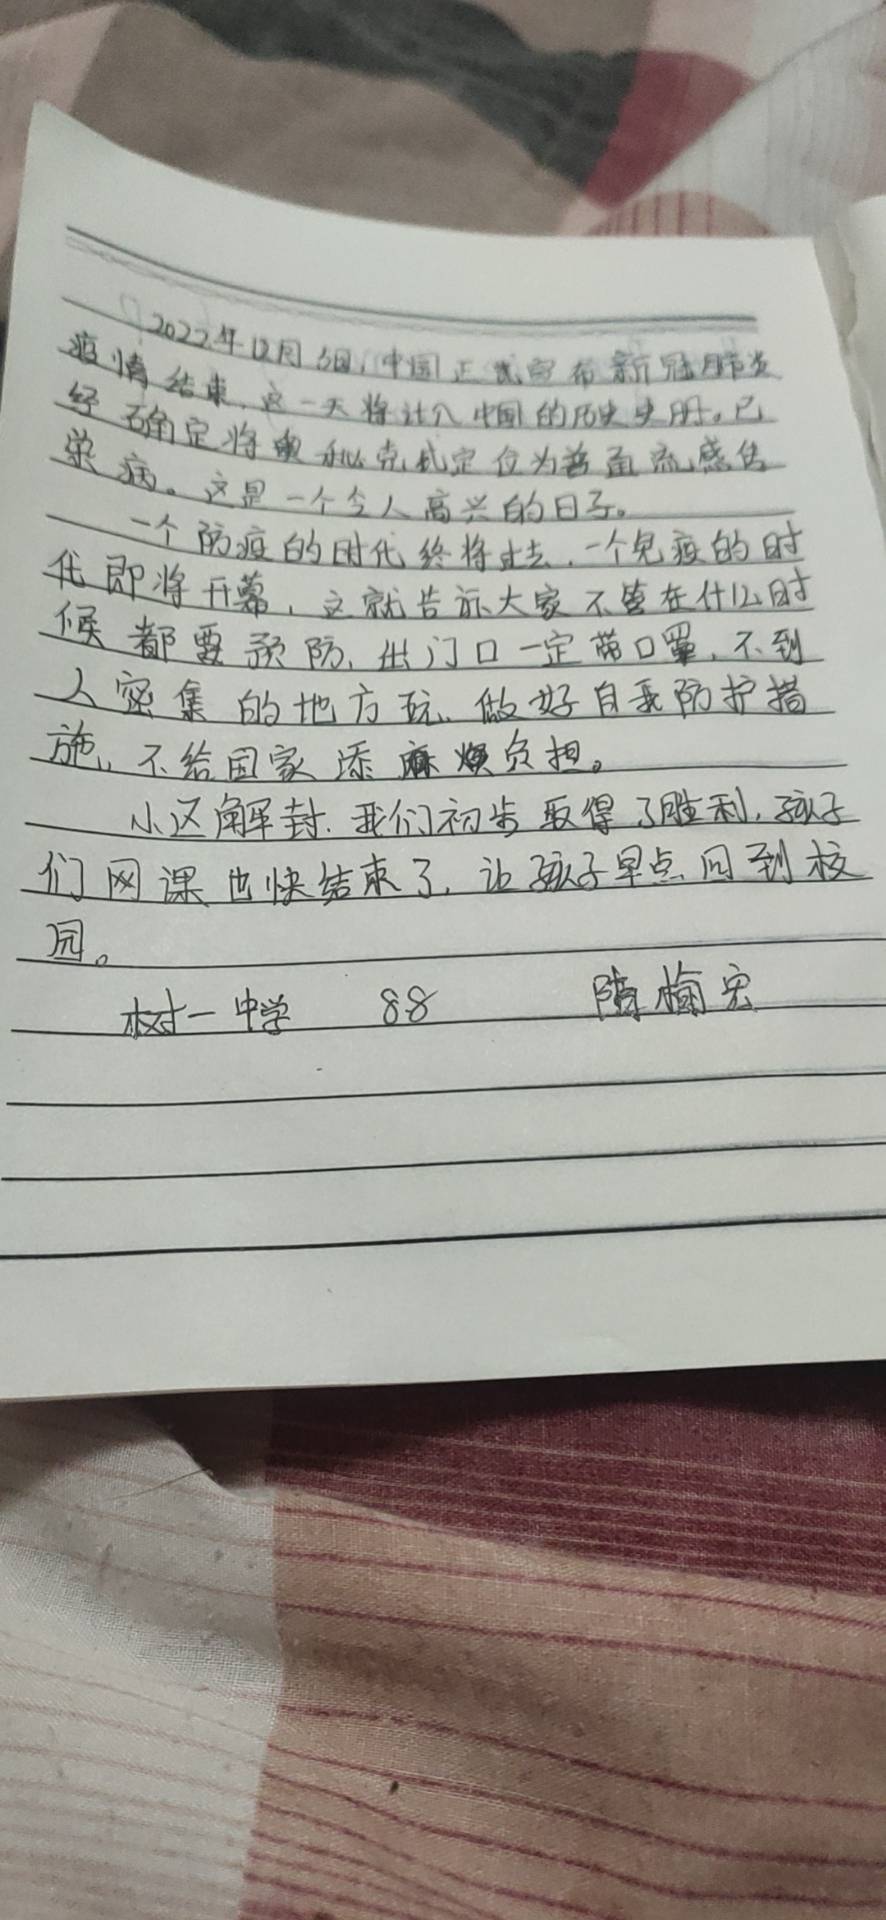 2022年12月6日，中国正式宣布新冠肺炎
疫情结束，这一天将计入中国的历史史册。已
经确定将奥秘克戎定位为普通流感传
染病。这是一个令人高兴的日子。
一个防疫的时代终将过去，一个免疫的时
代即将开幕，这就告诉大家不管在什么时
候都要预防，出门口一定带口罩，不到
人密集的地方玩，做好自我防护措
施，不给国家添麻烦负担。
小区解封，我们初步取得了胜利，孩子
们网课也快结束了，让孩子早点回到校
园。
树一中学 88 陈楠宏